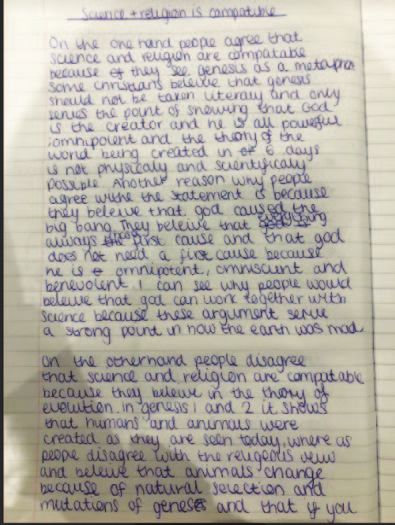 Science + religion is compatible
On the one hand people agree that
science and religion are compatable
because they see genesis as a metaphor
some christians beleive that genesis
should not be taken literaly and only
serves the point of showing that God
is the creator and he is all powerful
omnipotent and the theory of the
world being created in 6 days
is not physicaly and scientificaly
possible. Another reason why people
agree withe the statement is because
they beleive that god caused the
big bang They beleive that everything
always first cause and that god
does not need a first cause because
he is omnipotent, omniscient and
benevolent. I can see why people would
beleive that god can work together with
science because these argument serve
a strong point in how the earth was mad
on the otherhand people disagree
that science and religion are compatable
because they beleive in the theory of
evolution. in genesis 1 and 2 it shows
that humans and animals were
created as they are seen today, where as
people disagree with the religeous view
and beleive that animals change
because of natural selection and
mutations of genes and that if you